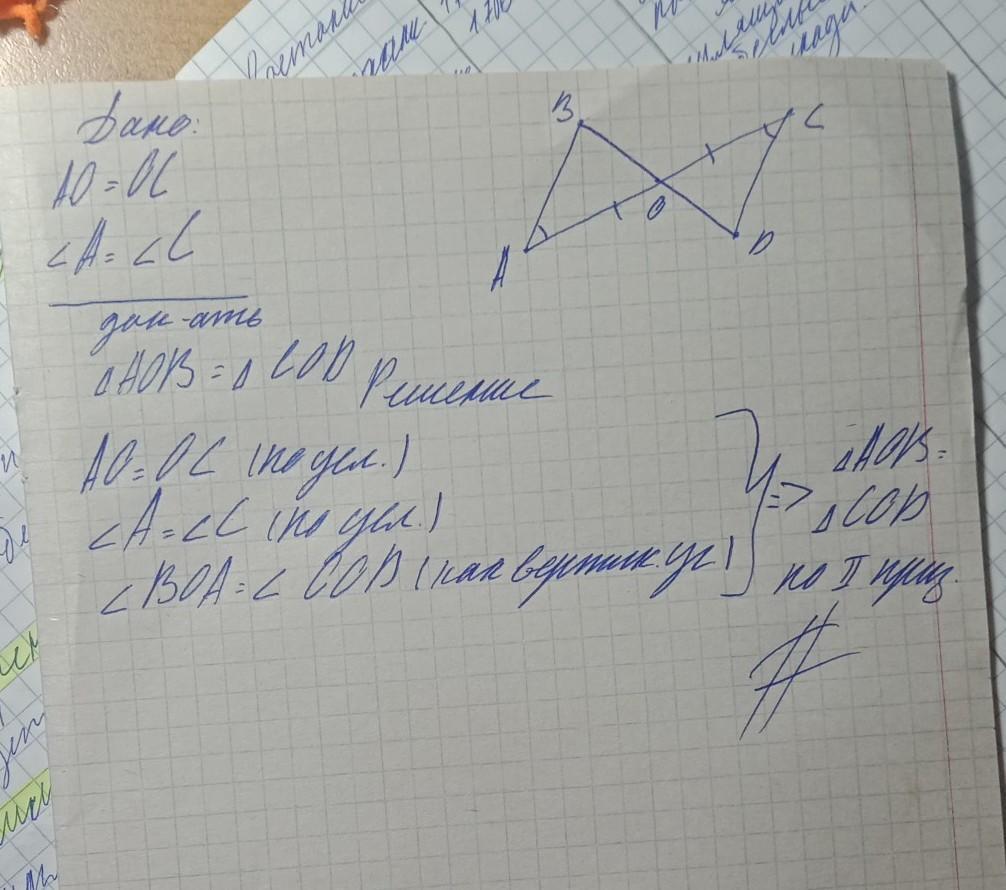 Дано:
AO = OC
∠A = ∠C
док-ать
△AOB = △COD
Решение
AO = OC (по усл.)
∠A = ∠C (по усл.)
∠BOA = ∠COD (как вертик. уг)
=> △AOB =
△COD
по II приз.
#
B
C
O
A
D